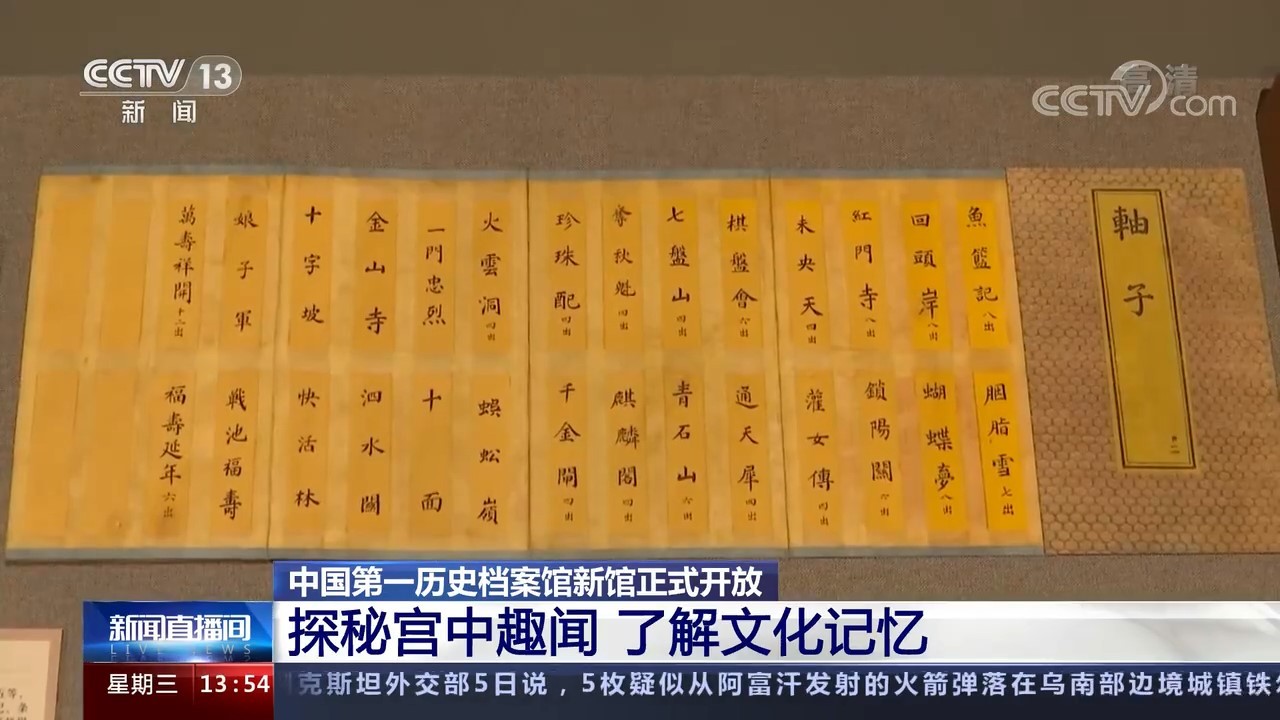 CCTV 13
新闻
高清
CCTV.com
軸子
魚籃記 八出
胭脂雪 七出
回頭岸 八出
蝴蝶夢 八出
紅門寺 八出
鎖陽關 六出
未央天 四出
灌女傳 四出
棋盤會 六出
通天犀 四出
七盤山 四出
青石山 六出
奪秋魁 四出
麒麟閣 四出
珍珠配 四出
千金閘 四出
火雲洞 四出
蜈蚣嶺
一門忠烈
十面
金山寺
泗水關
十字坡
快活林
娘子軍
戰池福壽
萬壽祥開 十二出
福壽延年 六出
中国第一历史档案馆新馆正式开放
新闻直播间
LIVE NEWS
探秘宫中趣闻 了解文化记忆
星期三 13:54
克斯坦外交部5日说，5枚疑似从阿富汗发射的火箭弹落在乌南部边境城镇铁